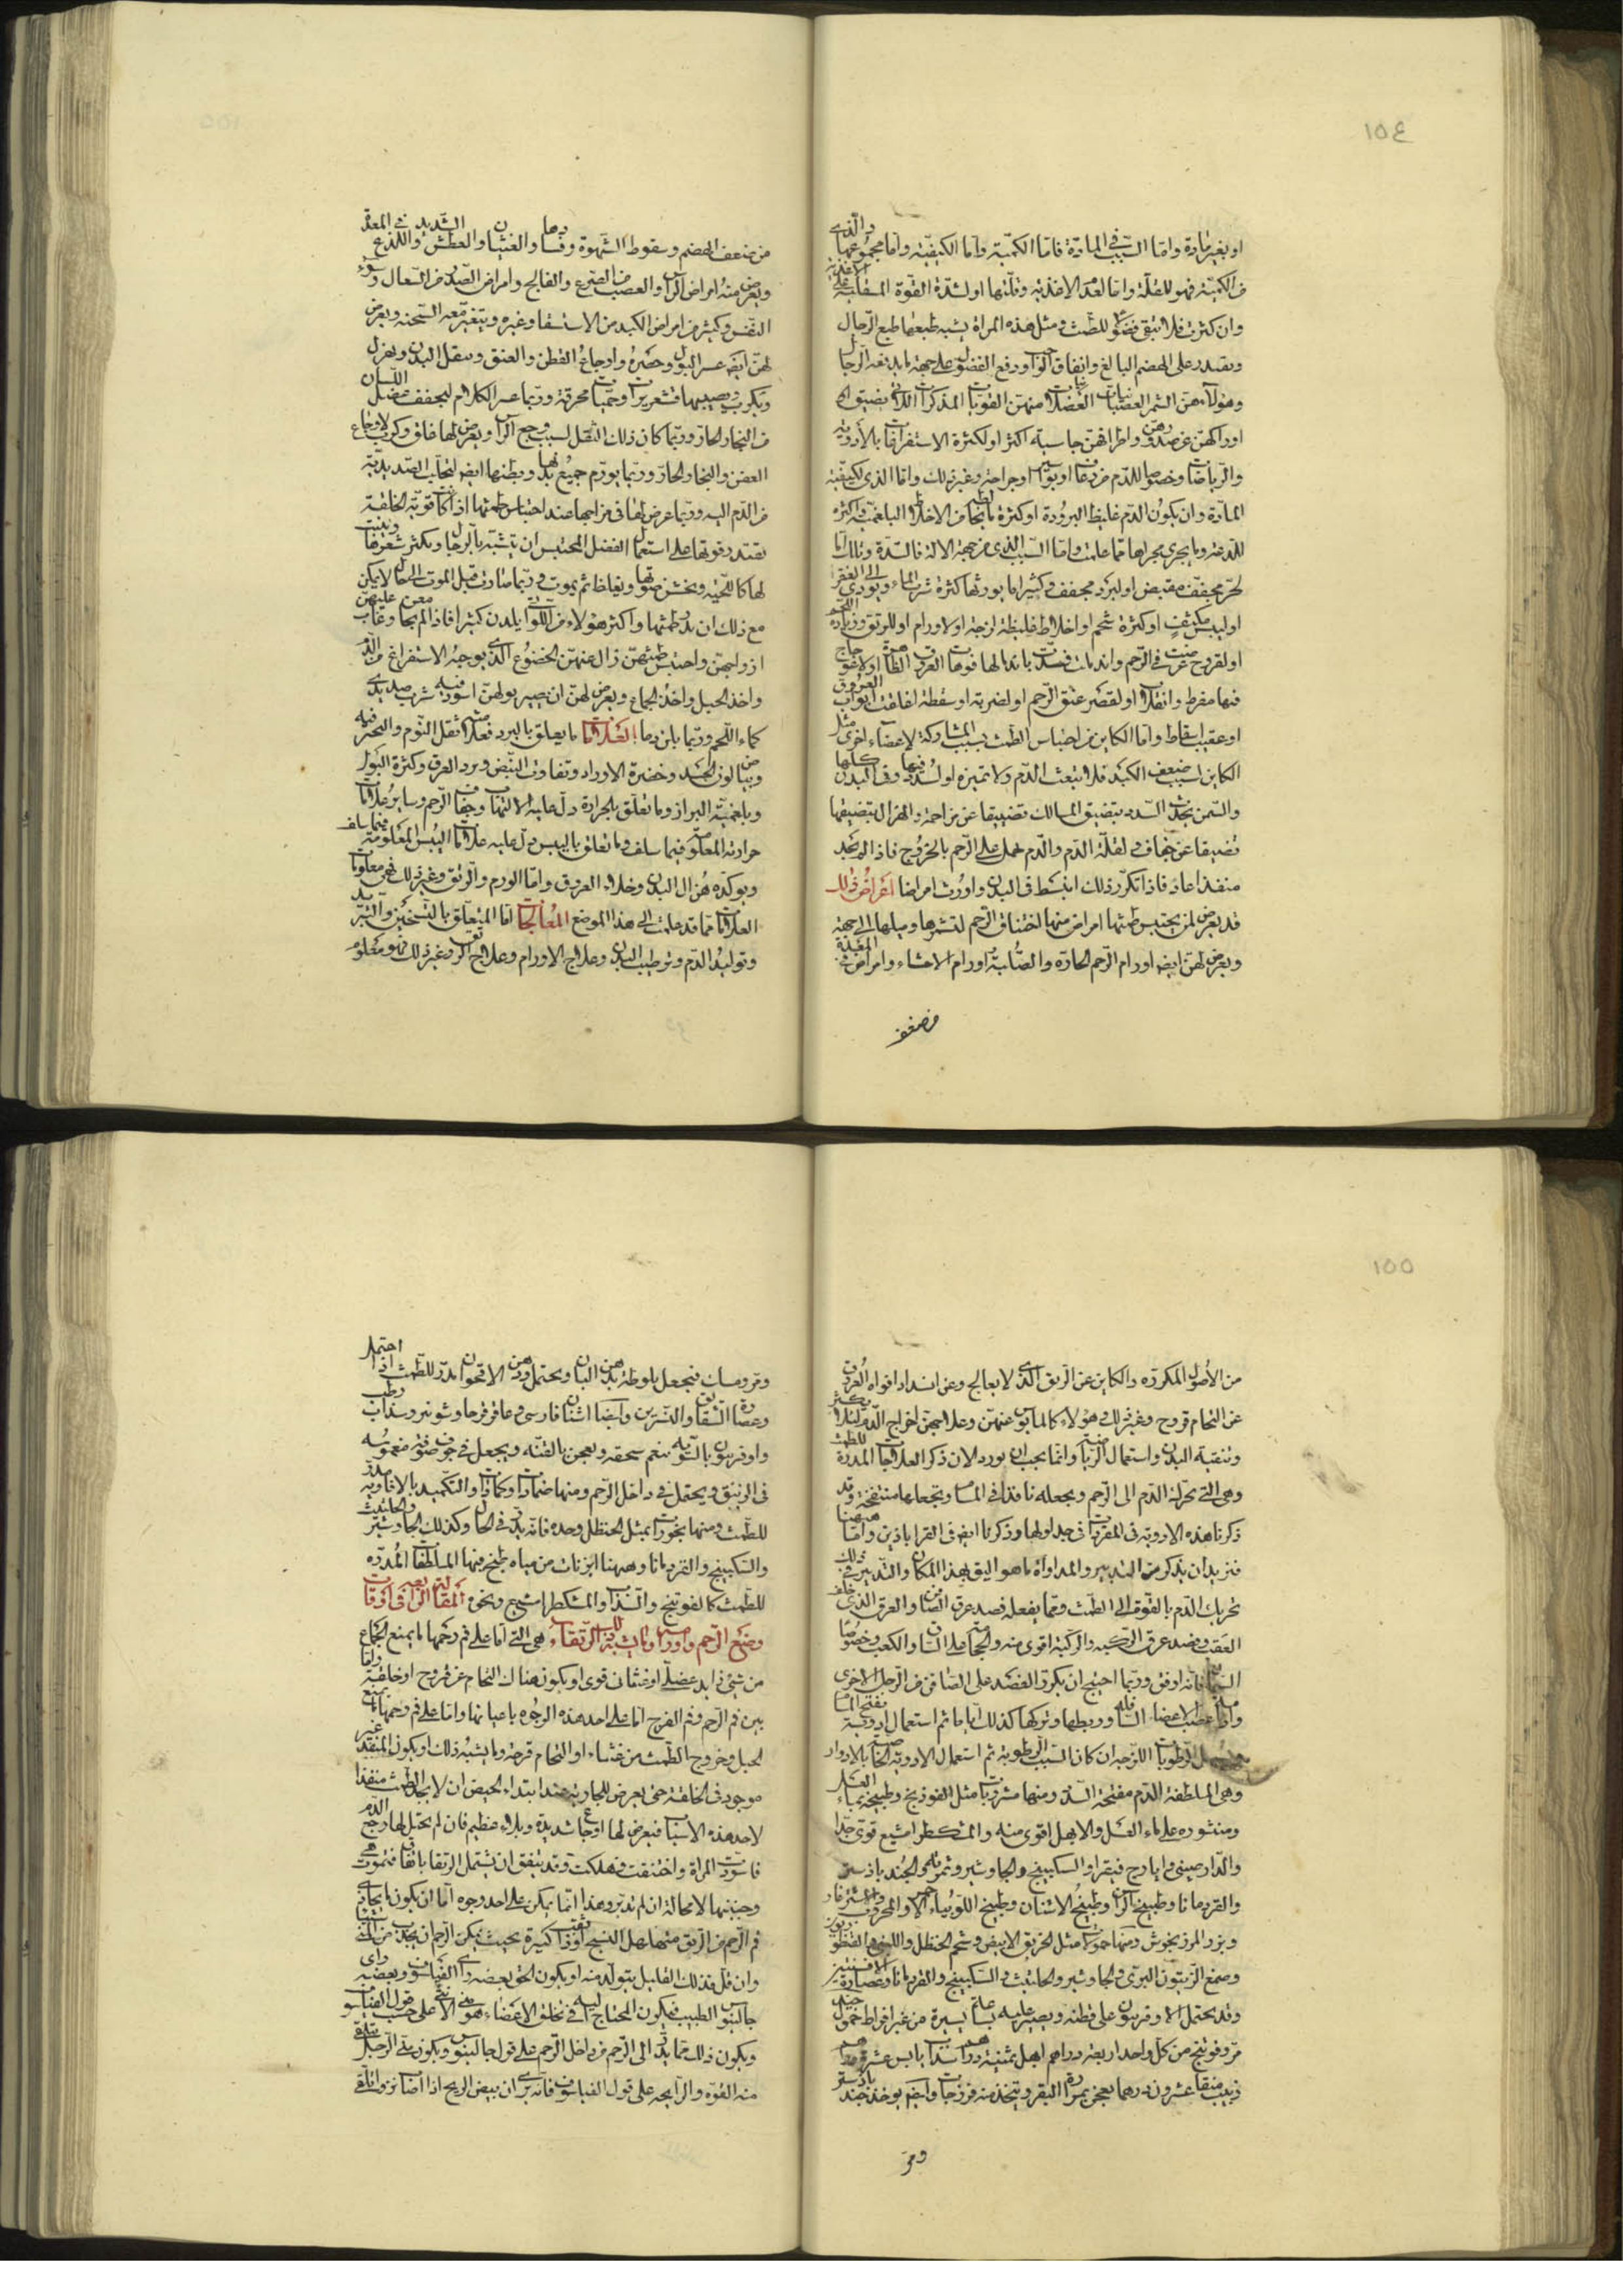 ١٥٤
او بغير مادة واما السبب في المادة فاما الكمية واما الكيفية واما مجموعهما والذي
في الكمية فهو للقلة واما لعدم الاغذية وقلتها او لشدة القوة
وان كثرت فلا تبقي فضولا للطمث ومثل هذه المراة يشبه طبعها طبع الرجال
ويقتدر على الهضم البالغ وانفاق الواجب ودفع الفضول على جهة ما يدفعه الرجال
وهؤلاء هن السمر العصبيات العضلانيات منهن القويات المذكرات اللاتي تضيق
اوراكهن عن صدورهن واطرافهن جاسية اكثر او لكثرة الاستفراغات بالأدوية
والرياضات وخصوصا للدم من رعاف او بواسير او جراحة وغير ذلك واما الذي لكيفية
المادة وان يكون الدم غليظ البرودة او كثرة ما يخالطه من الاخلاط البلغمية
للدعة وما يجري مجراها مما علمت واما السبب الذي من جهة الالة فالسدة وتلك اما
لحر مجفف مقبض او لبرد مجفف وكثيرا ما يورثها كثرة شرب الماء ويودي الى العقر
او ليبس مكثف او كثرة شحم او اخلاط غليظة لزجة او لاورام او للرتق وزيادة اللحم
او لقروح عرضت في الرحم واندملت فسدت باندمالها فوهات العروق
فيها مفرط وانقلاب او لقصر عنق الرحم او لضربة او سقطة اغلقت ابواب العروق
او عقيب اسقاط واما الكاين من احتباس الطمث بسبب المشاركة لاعضاء اخرى مثل
الكاين بسبب ضعف الكبد فلا تبعث الدم ولا تميزه او لسدد فيها وفي البدن كلها
والسمن يحدث السدد بتضييق المسالك تضييقا عن مزاحمة والهزال بتضيقها
تضيقا عن جفاف ولقلة الدم والدم يحمل على الرحم بالخروج فاذا لم يجد
منفذا عاد فاذا تكرر ذلك انبسط في البدن واورث امراضا امراض ذلك
قد يعرض لمن يحتبس طمثها امراض منها اختناق الرحم لتشمرها وميلها الى جهة
ويعرض لهن ايضا اورام الرحم الحارة والصلبة واورام الاحشاء وامراض في المعدة
من ضعف
من ضعف الهضم وسقوط الشهوة وفسادها والغثيان والعطش الشديد واللذع في المعدة
ويعرض منه امراض الراس والعصب من الصرع والفالج وامراض الصدر من السعال وسوء
النفس وكثير من امراض الكبد من الاستسقا وغيره ويتغير معه السحنة ويعرض
لهن ايضا عسر البول وحصره واوجاع القطن والعنق ويثقل البدن ويهزل
وتكرب ويصيبها قشعريرات وحميات محرقة وربما عسر الكلام لتجفف عضل اللسان
من البخار الحار وربما كان ذلك الثقل لسبب وجع الراس ويعرض لها قلق وكرب لاوجاع
العفن والبخار الحار وربما يورم جميع بدنها وبطنها ايضا لتحلب الصديدية
من الدم اليه وربما عرض لها في مزاجها عند احتباس طمثها اذا كانت قوية الخلقة
تقتدر قوتها على استعمال الفضل المحتبس ان يتشبه بالرجال ويكثر شعرها وينبت
لها كاللحية ويخشن صوتها ويغلظ ثم يموت وربما صارت قبل الموت الى حال لا يمكن
مع ذلك ان يدر طمثها واكثر هؤلاء من اللواتي يلدن كثيرا فاذا لم يجامعن وغاب عليهن
ازواجهن واحتبس طمثهن زال عنهن الخضوع الذي يوجبه الاستفراغ من الدم
واخذ الحبل واخذ الجماع ويعرض لهن ان يصير بولهن اسود فيه شرب صديدي
كماء اللحم وربما بلن دما العلامات ما يعلق بالبرد فعلامته ثقل النوم والتحير فيه
وبياض لون الجسد وخضرة الاوراد وتفاوت النبض وبرد العرق وكثرة البول
وبلغمية البراز وما تعلق بالحرارة دل عليه الالتهاب وجفاف الرحم وساير علامات
حرارته المعلومة فيما سلف وما تعلق باليبس دل عليه علامات اليبس المعلومة فيما سلف
ويوكده هزال البدن وخلاء العروق واما الورم والرتق وغير ذلك فهي معلومات
العلامات مما قد علمت الى هذا الموضع المعالجات اما المتعلق بالتسخين والتبريد
وتوليد الدم وترطيب البدن وعلاج الاورام وعلاج الرتق وغير ذلك فهو معلوم
١٥٥
من الأصول المكررة والكاين عن الرتق الذي لا يعالج وعن انسداد افواه العروق
عن التحام قروح وغير ذلك وهؤلاء كالمايوس عنهن وعلاجهن اخراج الدم لئلا يكثر
وتنقية البدن واستعمال الرياضة وانما يجب ان نورد الان ذكر العلاجات المدرة للطمث
وهي التي تحرك الدم الى الرحم ويجعله نافذا في المسام وتجعلها منفتحة وقد
ذكرنا هذه الادوية في المفردات في جداولها وذكرنا ايضا في القراباذين واما ههنا
فنريد ان نذكر من التدبير والمداواة ما هو اليق بهذا المكان والتدبير في ذلك
تحريك الدم بالقوة الى الطمث ومما يفعله فصد عرق الصافن والعرق الذي خلف
العقب وفصد عرق الركبة والركبة اقوى منه والحجامة على الساق والكعب وخصوصا
السمان فانه اوفق وربما احتيج ان يكون الفصد على الصافن من الرجل الاخرى
وايضا عصب الاعضاء السافلة وربطها وتركها كذلك اياما ثم استعمال ادوية تفتح المسام
وتسهيل الرطوبات اللزجة ان كان السبب الرطوبة ثم استعمال الادوية الخاصية بالادرار
وهي الملطفة للدم مفتحة السدد ومنها مشروبات مثل الفوذنج وطبيخه بماء العسل
ومنثوره على ماء العسل والابهل اقوى منه والمشكطرامشيع قوي جدا
والدارصيني وايارج فيقرا والسكبينج والجاوشير وثمرته والجندباذستر
والقردمانا وطبيخ الراسن وطبيخ الاشنان وطبيخ اللوبياء الاحمر
وبزر المرزنجوش ومنها حمولات مثل الخربق الابيض وشحم الحنظل والقنطوريون
وصمغ الزيتون البري والجاوشير والحلتيت والسكبينج والقردمانا وعصارة الافسنتين
وقد يحتمل الاوفربيون على قطنة ويصبر عليه ساعة يسيرة من غير افراط حمول جيد
مر وفوتنج من كل واحد اربعة دراهم ابهل ثمنية دراهم سذاب يابس عشرة دراهم
زبيب منقا عشرون درهما يعجن بمرارة البقر ويتخذ منه فرزجات وايضا يوخذ جندبادستر
ومر
ومر وسك فيجعل بلوطة بدهن البان ويحتمل ودهن الاقحوان يدر للطمث اذا احتمل
وعصارة الشقايق والنسرين وايضا اشنان فارسي وعاقرقرحا وشونيز وسذاب رطب
واوفربيون بالسوية ينعم سحقه ويعجن بالقنة ويجعل في جوف صوفة مغموسة
في الزنبق ويحتمل في داخل الرحم ومنها ضمادات وكمادات والتكميد بالافاوية مدر
للطمث ومنها بخورات بمثل الحنظل وحده فانه يدر في الحال وكذلك الجاوشير والحلتيت
والسكبينج والقردمانا وههنا ابزنات من مياه طبخ فيها الملطفات المدرة
للطمث كالفوتنج والسذاب والمشكطرامشيع ونحوه المقالة الرابعة في آفات
وضع الرحم واورامه وما يشبه ذلك الرتقاء هي التي اما على فم رحمها ما يمنع الجماع
من شيء زايد عضلي او غشائي قوي او يكون هناك التحام عن قروح او خلقة واما
بين فم الرحم وفم الفرج اما على احد هذه الوجوه باعيانها واما على فم رحمها ما يمنع
الحبل وخروج الطمث من غشاء او التحام قرحة وما يشبه ذلك او يكون المنفذ غير
موجود في الخلقة حتى يعرض للجارية عند ابتداء الحيض ان لا يجد الطمث منفذا
لاحد هذه الاسباب فيعرض لها اوجاع شديدة وبلاء عظيم فان لم يحتل لها رجع الدم
فاسودت المراة واختنقت وهلكت وقد يتفق ان يشتمل الرتقا باتفاق فتموت هي
وجنينها لا محالة ان لم تدبر وهذا انما يمكن على احد وجوه اما ان يكون ما يحاذي
فم الرحم من الرتق متهلهل النسج او ذا ثقب كثيرة بحيث يمكن الرحم ان يجذب من المني شيئا
وان قل فذلك القليل يتولد منه او يكون الحق بعضه راي الفيلسوف وبعضه راي
جالينوس الطبيب فيكون المحتاج اليه في تخلق الاعضاء هو مني الانثى على حسب قول الفيلسوف
ويكون ذلك مما يدر الى الرحم من داخل الرحم على قول جالينوس ويكون مني الرجل
منه القوة والرايحة على قول الفيلسوف فانه يرى ان بيض الريح اذا اصابه